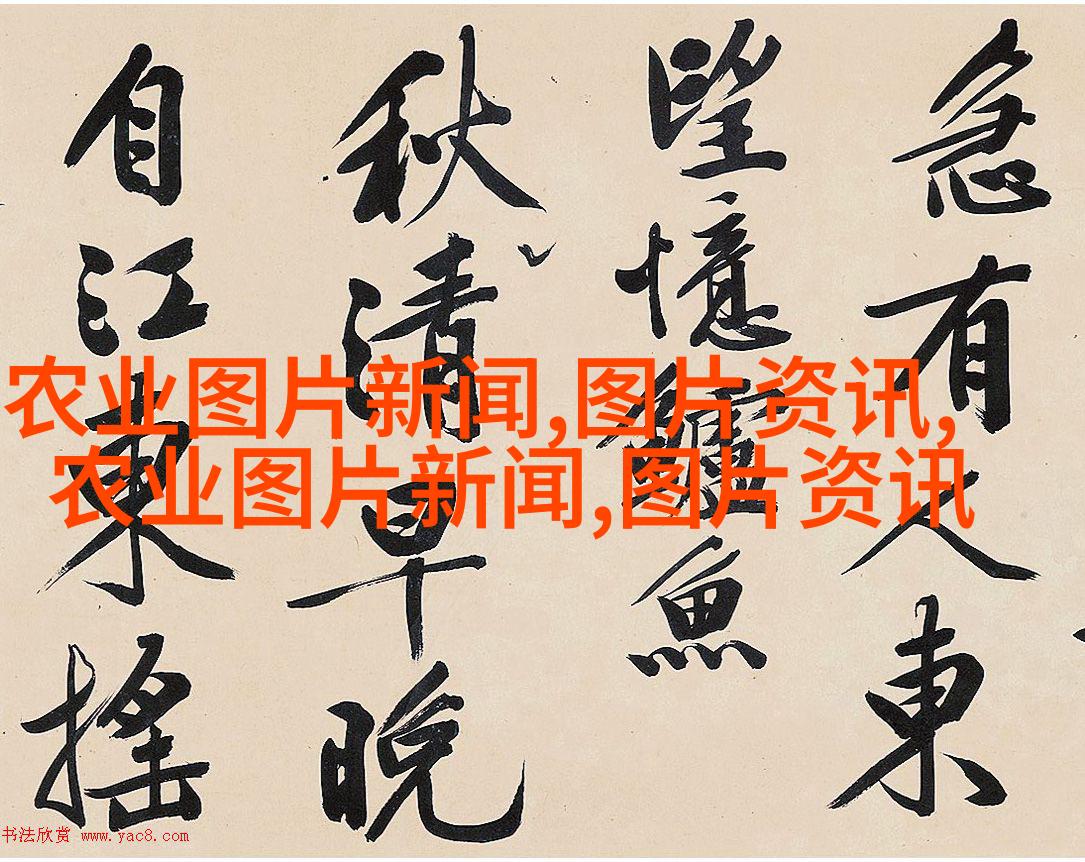 急有人東
望憶魚
秋清早晚
自江東搖
农业图片新闻,图片资讯,
农业图片新闻,图片资讯
书法欣赏 www.yac8.com